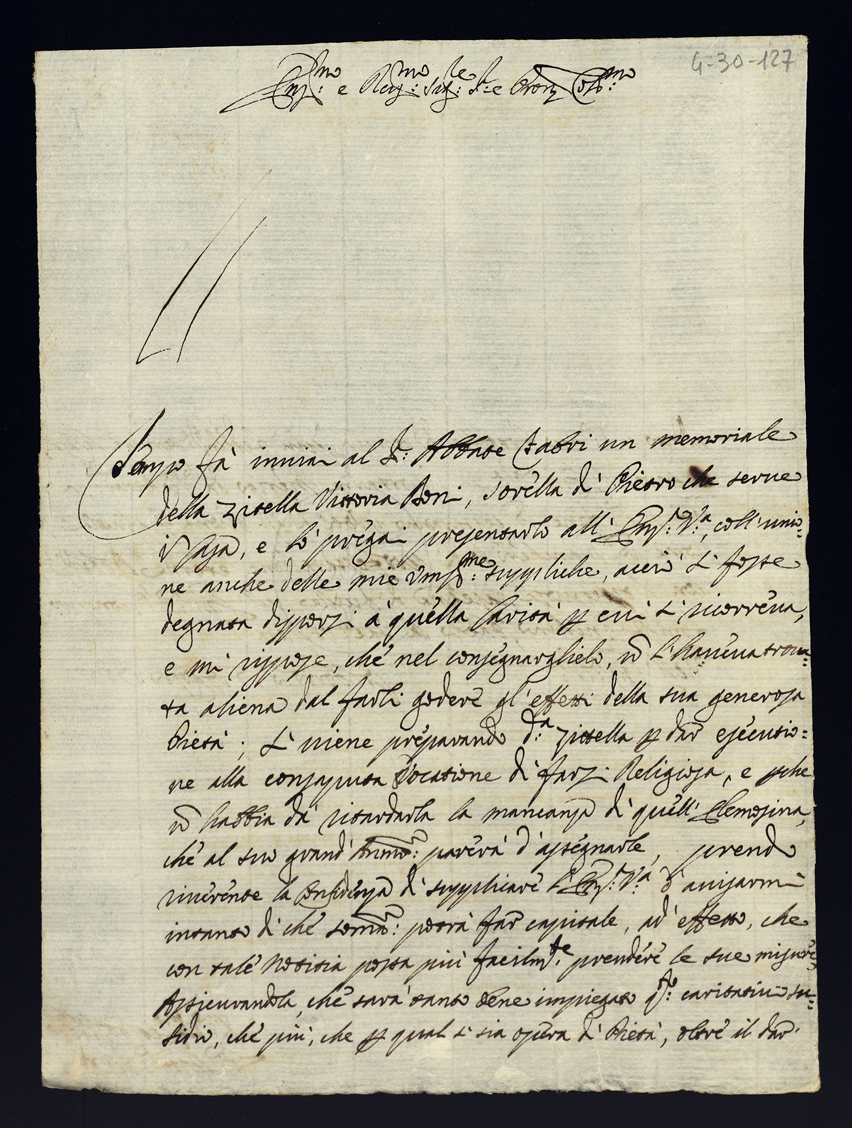 4-30-127
Em.mo e Rev.mo Sig.re S.e e Pron Col.mo
Tempo fà inviai al S.r Abbate Fabri un memoriale
della zitella Vittoria Boni, sorella di Pietro che serve
in, e lo pregai presentarlo all' Em.a V.a, coll' unio=
ne anche delle mie um.me suppliche, acciò si fosse
degnata disporsi à quella Carità p cui si ricorreva,
e mi rispose, che nel consegnarglielo, nõ l'haveva trova=
ta aliena dal farli godere gl'effetti della sua generosa
Pietà; si viene preparando d.a zittella p dar esecutio=
ne alla conosciuta Vocatione di farsi Religiosa, e pche
nõ habbia da ritardarla la mancanza di quell' Elemosina,
che al suo grand' Animo parerà d'assegnarle, prendo
riverente la confidenza di supplicare l'Em.a V.a d'avisarmi
intanto di che somma potrà far capitale, ad effetto, che
con tale Notitia possa più facilm.te prendere le sue misure
Assicurandola, che sarà tanto bene impiegato q.to caritativo su=
sidio, che più, che p qual si sia opera di Pietà, oltre il dar